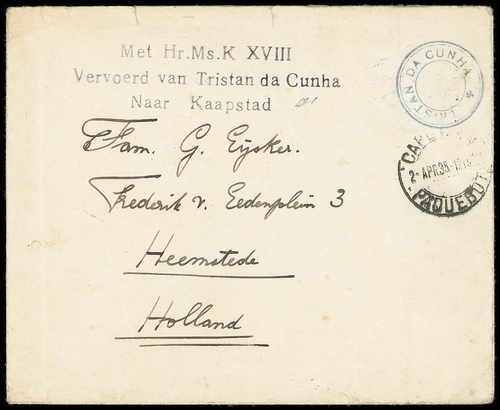 Met Hr.Ms.K XVIII
Vervoerd van Tristan da Cunha
Naar Kaapstad
TRISTAN DA CUNHA
CAPE
2-APR.35-12
PAQUEBOT
Fam. G. Eijsker.
Frederik v. Eedenplein 3
Heemstede
Holland